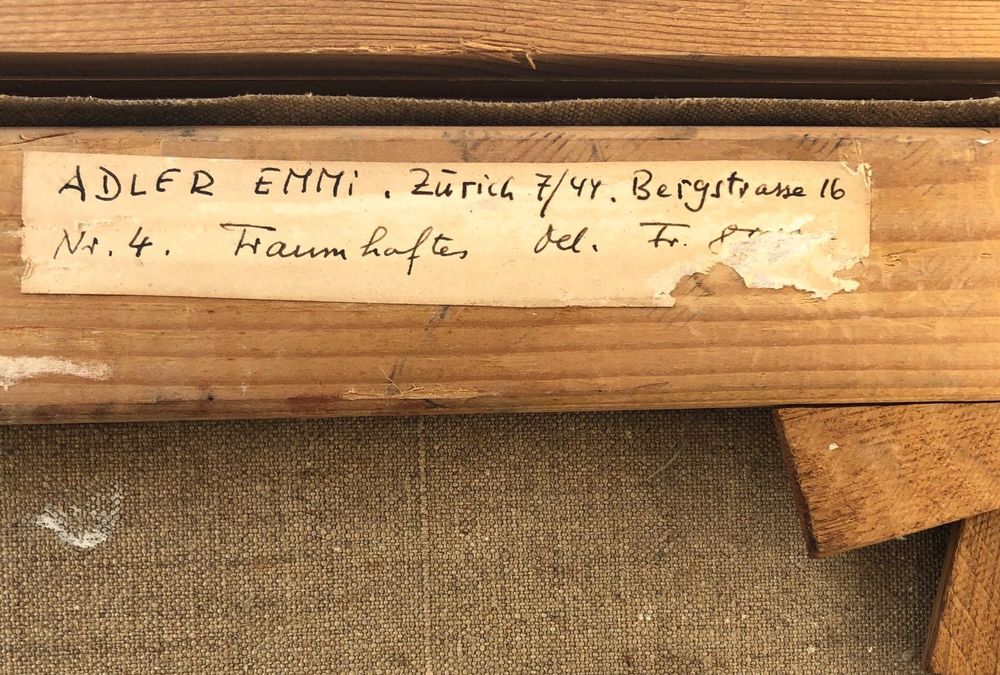 ADLER EMMi . Zürich 7/44. Bergstrasse 16
Nr. 4. Traumhaftes Oel. Fr.